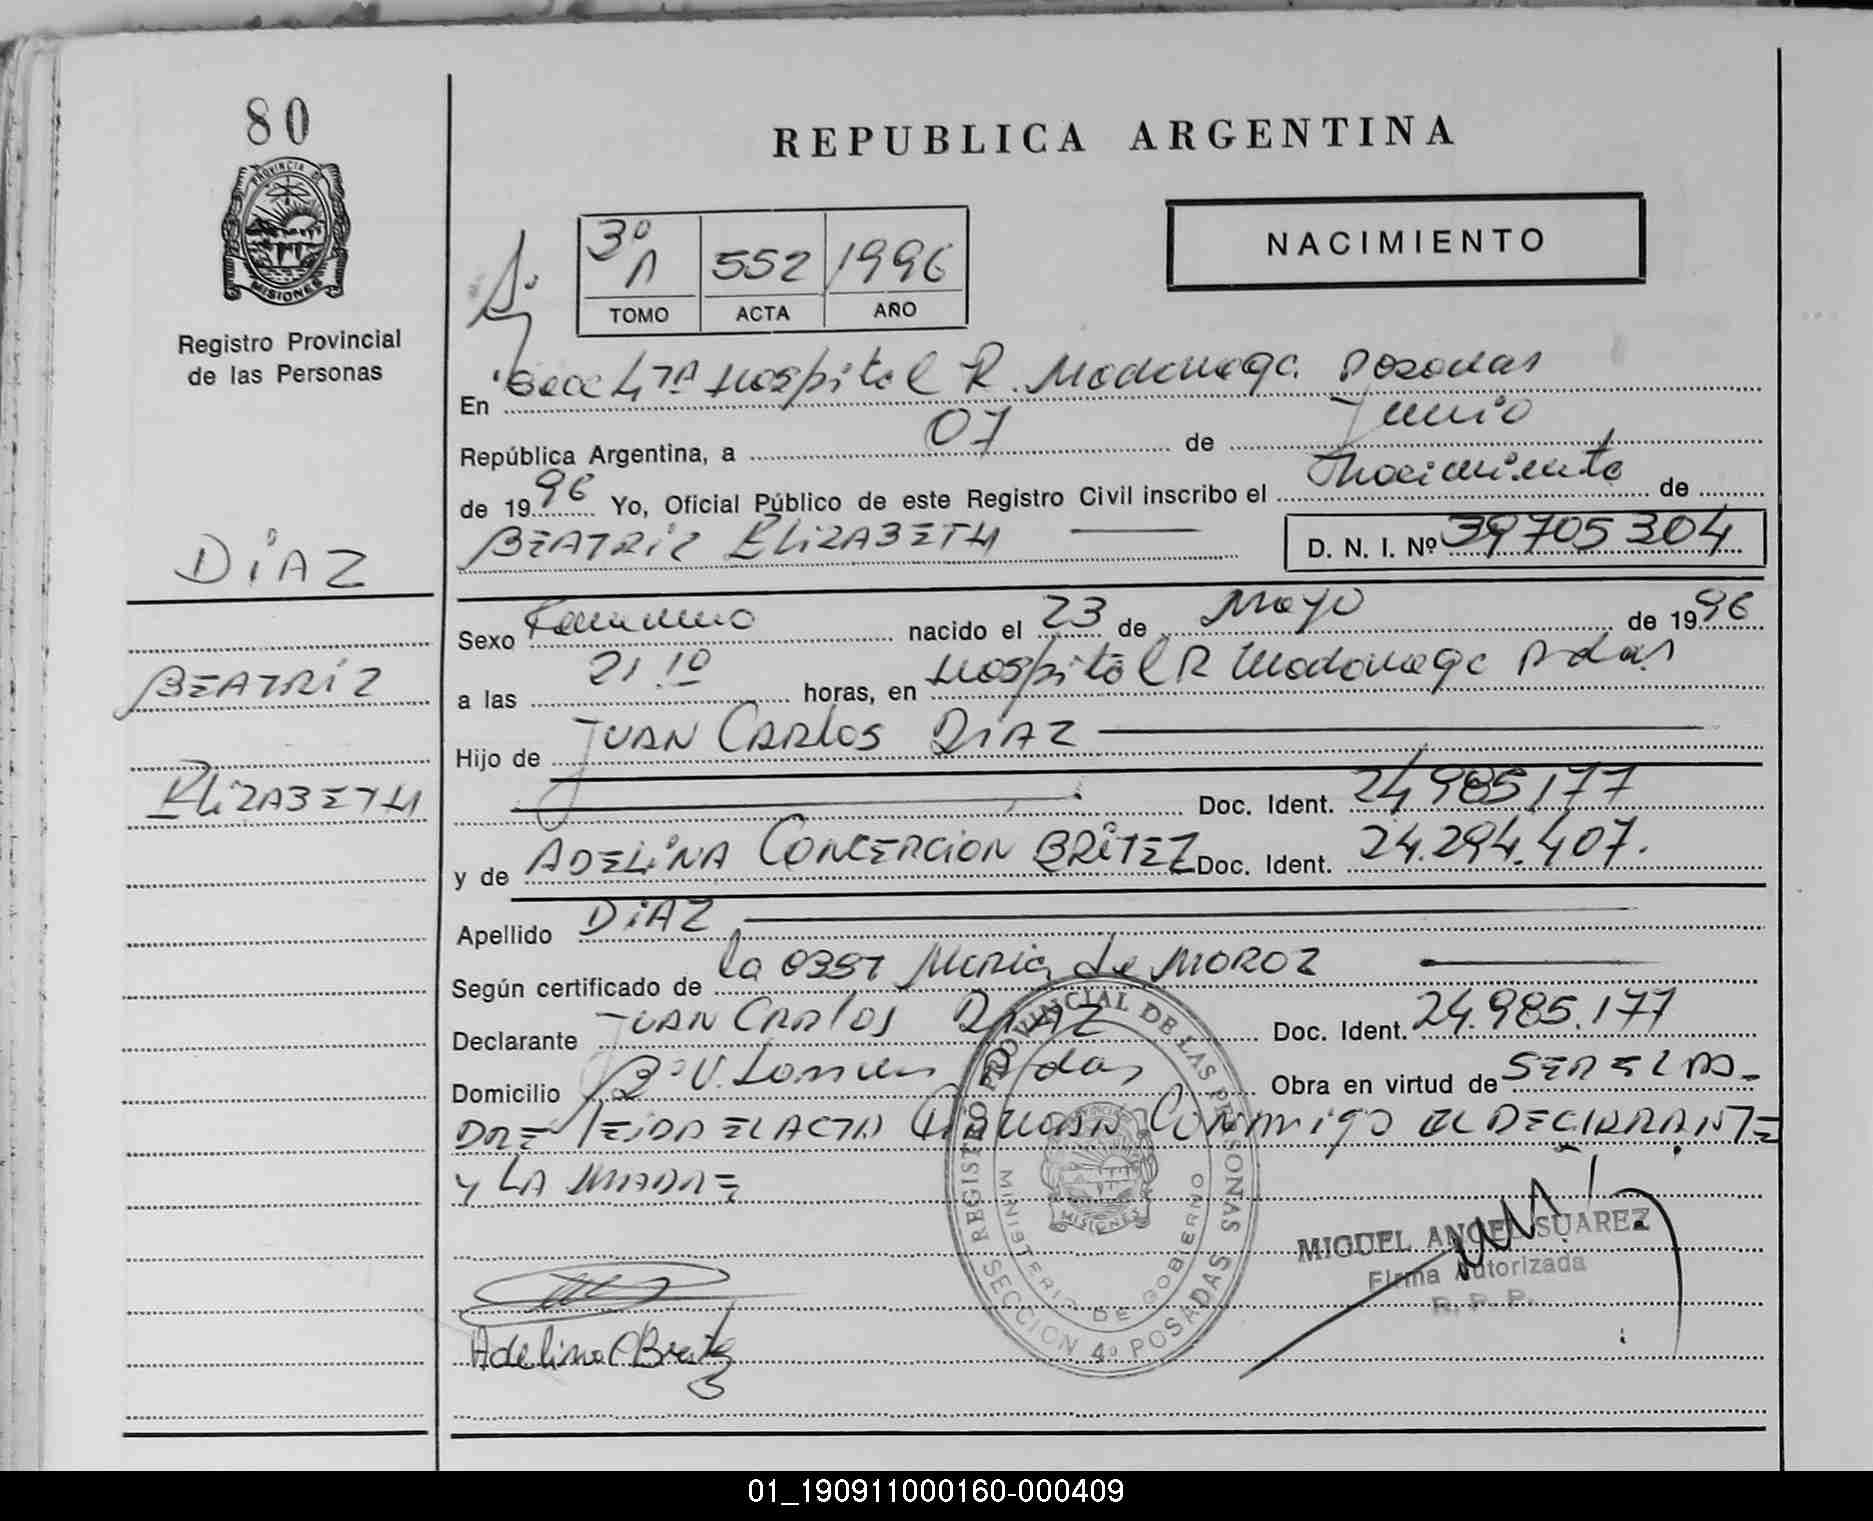 80
PROVINCIA DE
MISIONES
Registro Provincial
de las Personas
DiAZ
BEATRÍZ
ELIZABETH
REPUBLICA ARGENTINA
NACIMIENTO
3º A 552 1996
TOMO ACTA AÑO
En Secc 4TA Hospital R. Madariaga. Posadas
República Argentina, a 07 de Junio
de 1996 Yo, Oficial Público de este Registro Civil inscribo el Nacimiento de
BEATRIZ ELIZABETH D. N. I. Nº 39705304
Sexo Femenino nacido el 23 de Mayo de 1996
a las 21.10 horas, en Hospital R Madariaga Pdas
Hijo de JUAN CARLOS DIAZ
Doc. Ident. 24,985,177
y de ADELINA CONCEPCION BRÍTEZ Doc. Ident. 24.294.407.
Apellido DIAZ
Según certificado de la OBST María de MOROZ
Declarante JUAN CARLOS DIAZ Doc. Ident. 24.985.177
Domicilio Bº V. Pdas Obra en virtud de SER EL PA-
DRE LEIDA EL ACTA FIRMAN Conmigo EL DECLARANTE
y LA MADRE
REGISTRO PROVINCIAL DE LAS PERSONAS
MINISTERIO DE GOBIERNO
MISIONES
SECCION 4º POSADAS
MIGUEL ANGEL SUAREZ
Firma Autorizada
R. P. P.
Adelina C Britez
01_190911000160-000409